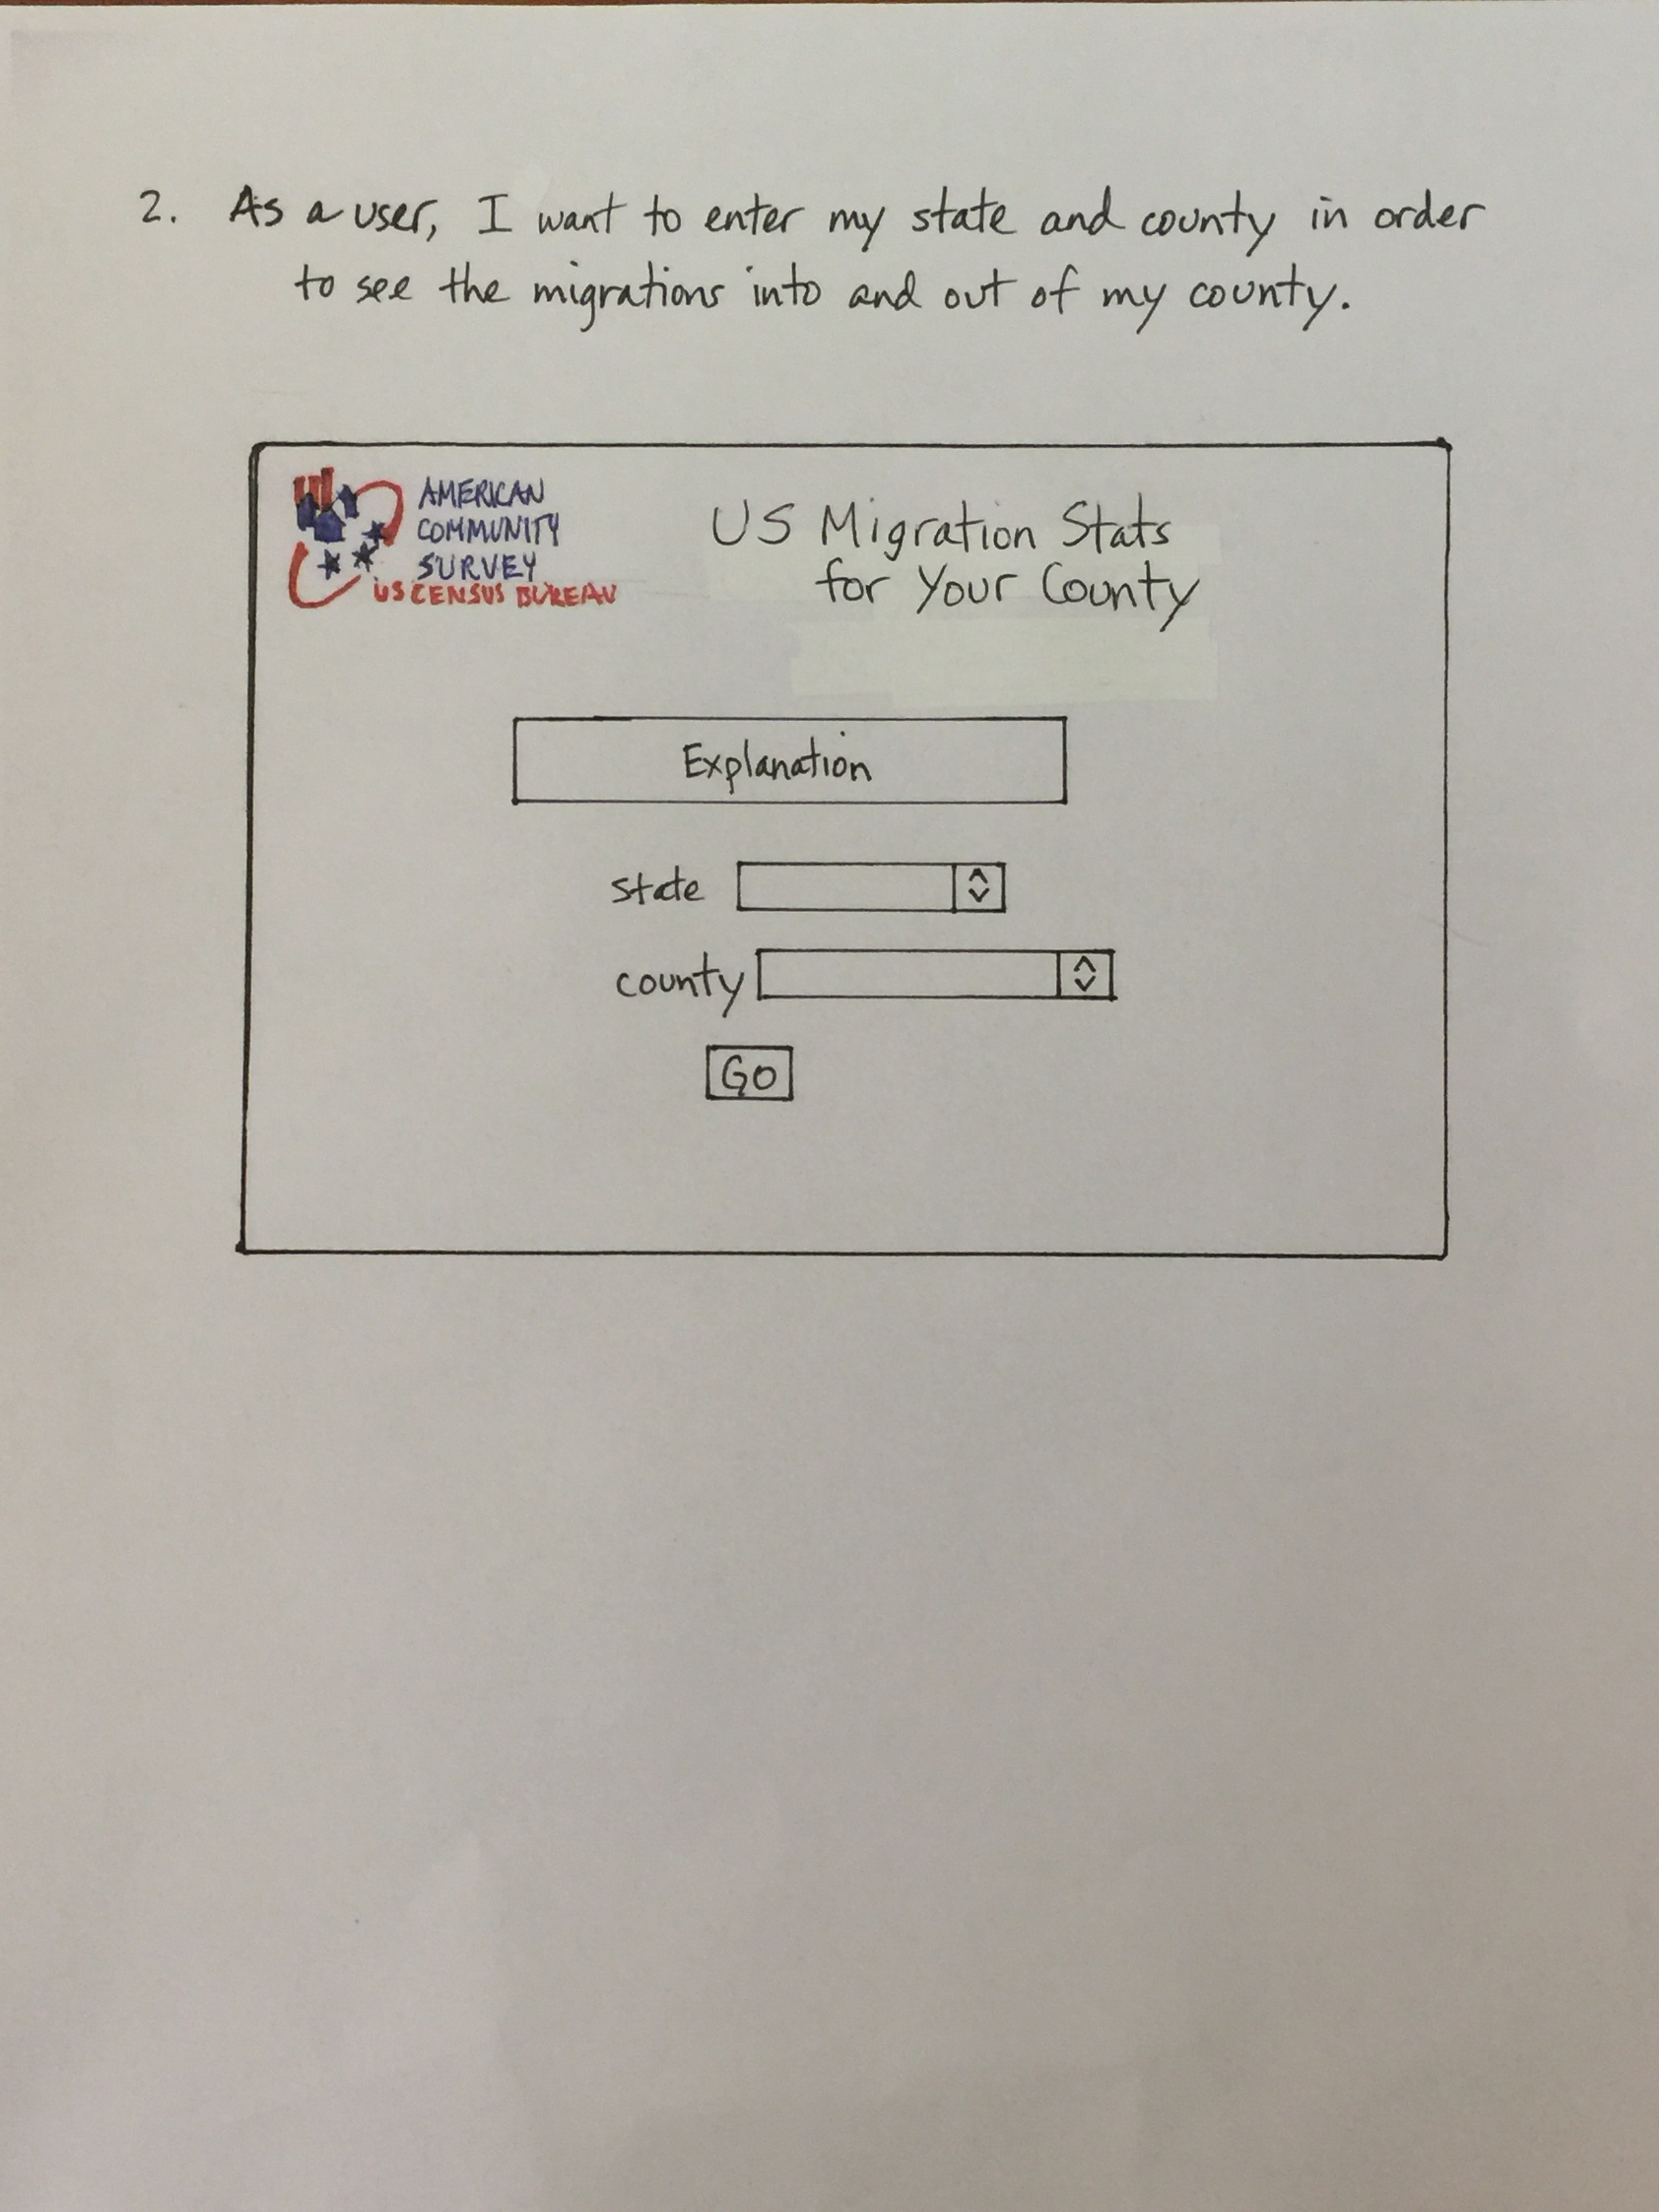 2. As a user, I want to enter my state and county in order
to see the migrations into and out of my county.
AMERICAN
COMMUNITY
SURVEY
US CENSUS BUREAU
US Migration Stats
for Your County
Explanation
state
county
GO